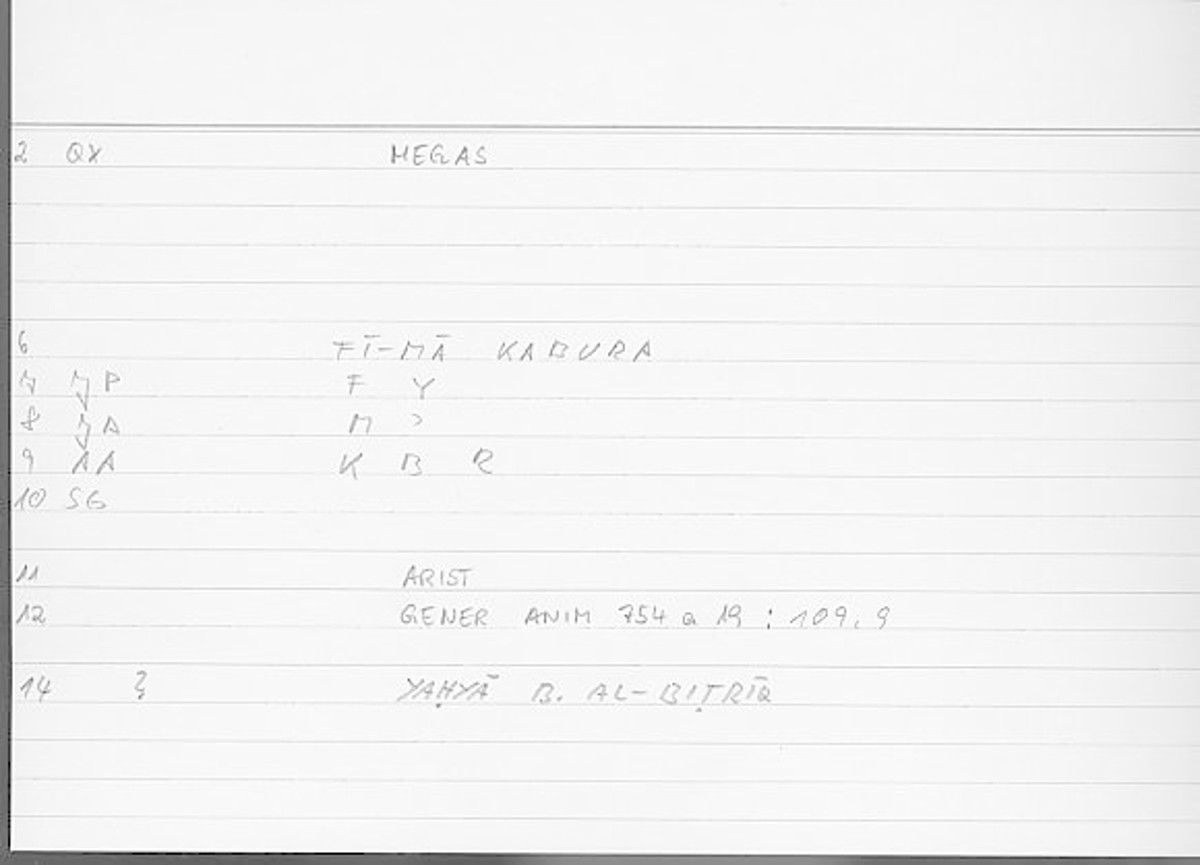 2 QX MEGAS
6 FĪ-MĀ KABURA
F Y
8 M ɔ
9 AA K B R
10 SG
11 ARIST
12 GENER ANIM 754 a 19 : 109.9
14 YAḤYĀ B. AL-BIṬRĪQ